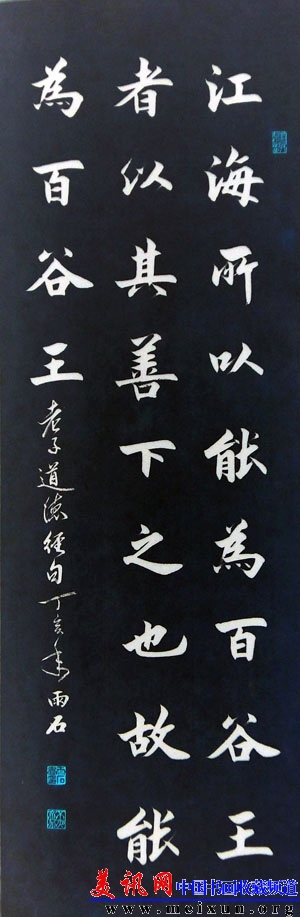 江海所以能為百谷王
者以其善下之也故能
為百谷王
老子道德經句丁亥年雨石
美訊网
中国书画收藏频道
www.meixun.org